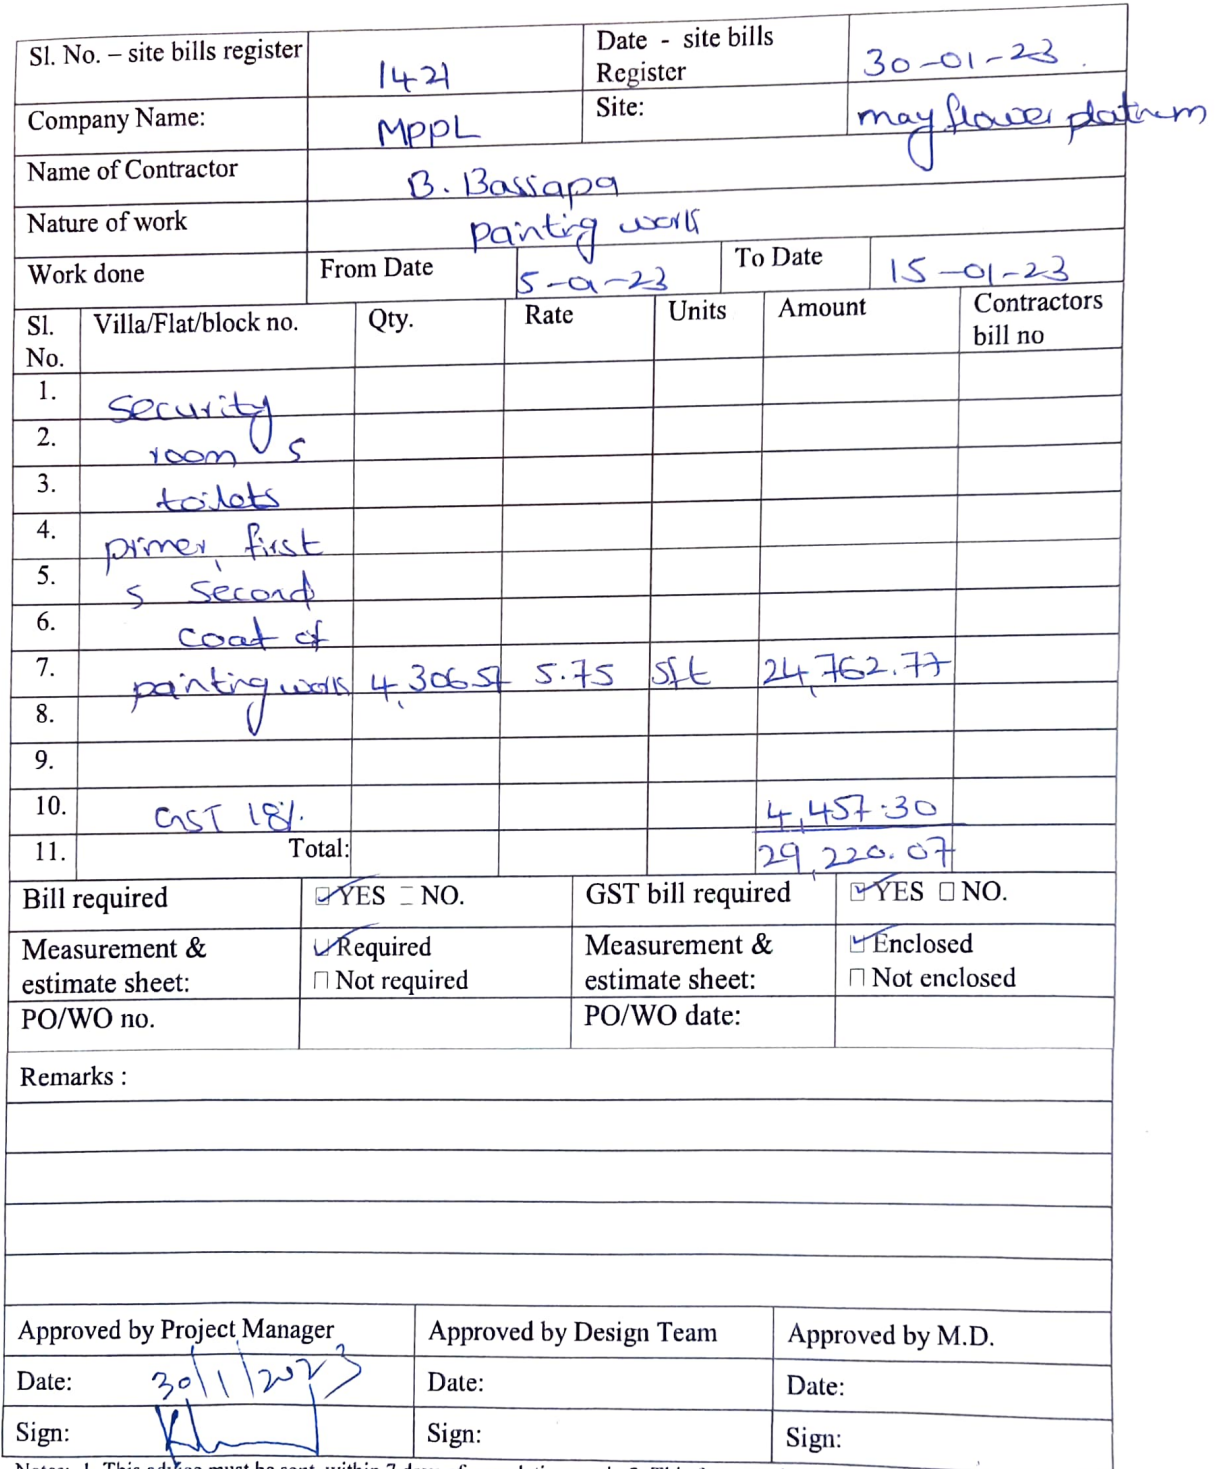 Sl. No. – site bills register 1421 Date - site bills Register 30-01-23
Company Name: MPPL Site: mayflower platnum
Name of Contractor B. Bassapa
Nature of work painting work
Work done From Date 5-01-23 To Date 15-01-23
Sl. No. Villa/Flat/block no. Qty. Rate Units Amount Contractors bill no
1. security
2. room s
3. toilets
4. primer, first
5. s second
6. coat of
7. painting work 4,306.57 5.75 sft 24,762.77
8.
9.
10. GST 18% 4,457.30
11. Total: 29,220.07
Bill required ☑ YES ☐ NO. GST bill required ☑ YES ☐ NO.
Measurement & ☑ Required Measurement & ☑ Enclosed
estimate sheet: ☐ Not required estimate sheet: ☐ Not enclosed
PO/WO no. PO/WO date:
Remarks :
Approved by Project Manager Approved by Design Team Approved by M.D.
Date: 30/1/2023 Date: Date:
Sign: Sign: Sign: